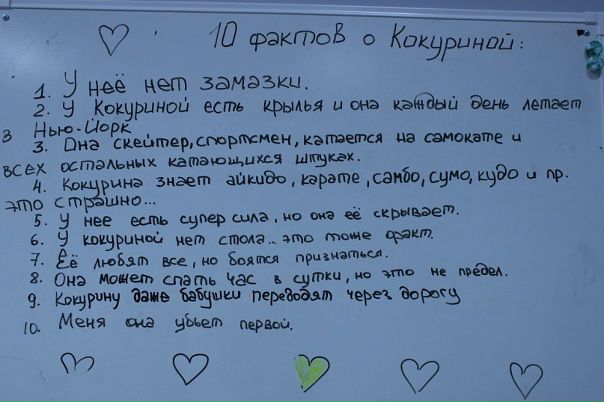 10 фактов о Кокуриной:
1. У неё нет замазки.
2. У Кокуриной есть крылья и она каждый день летает
в Нью-Йорк
3. Она скейтер, спортсмен, катается на самокате и
всех остальных катающихся штуках.
4. Кокурина знает айкидо, карате, самбо, сумо, кудо и пр.
это страшно...
5. У нее есть супер сила, но она её скрывает.
6. У кокуриной нет стола... это тоже факт.
7. Её любят все, но боятся признаться.
8. Она может спать час в сутки, но это не предел.
9. Кокурину даже бабушки переводят через дорогу
10. Меня она убьет первой.